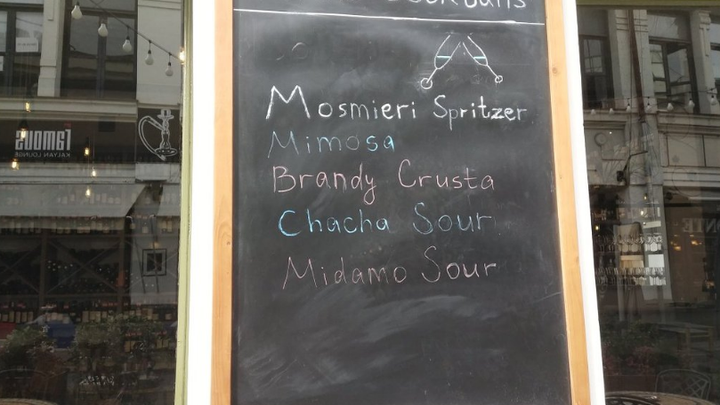 Cocktails
Mosmieri Spritzer
Mimosa
Brandy Crusta
Chacha Sour
Midamo Sour
famous
KALYAN LOUNGE